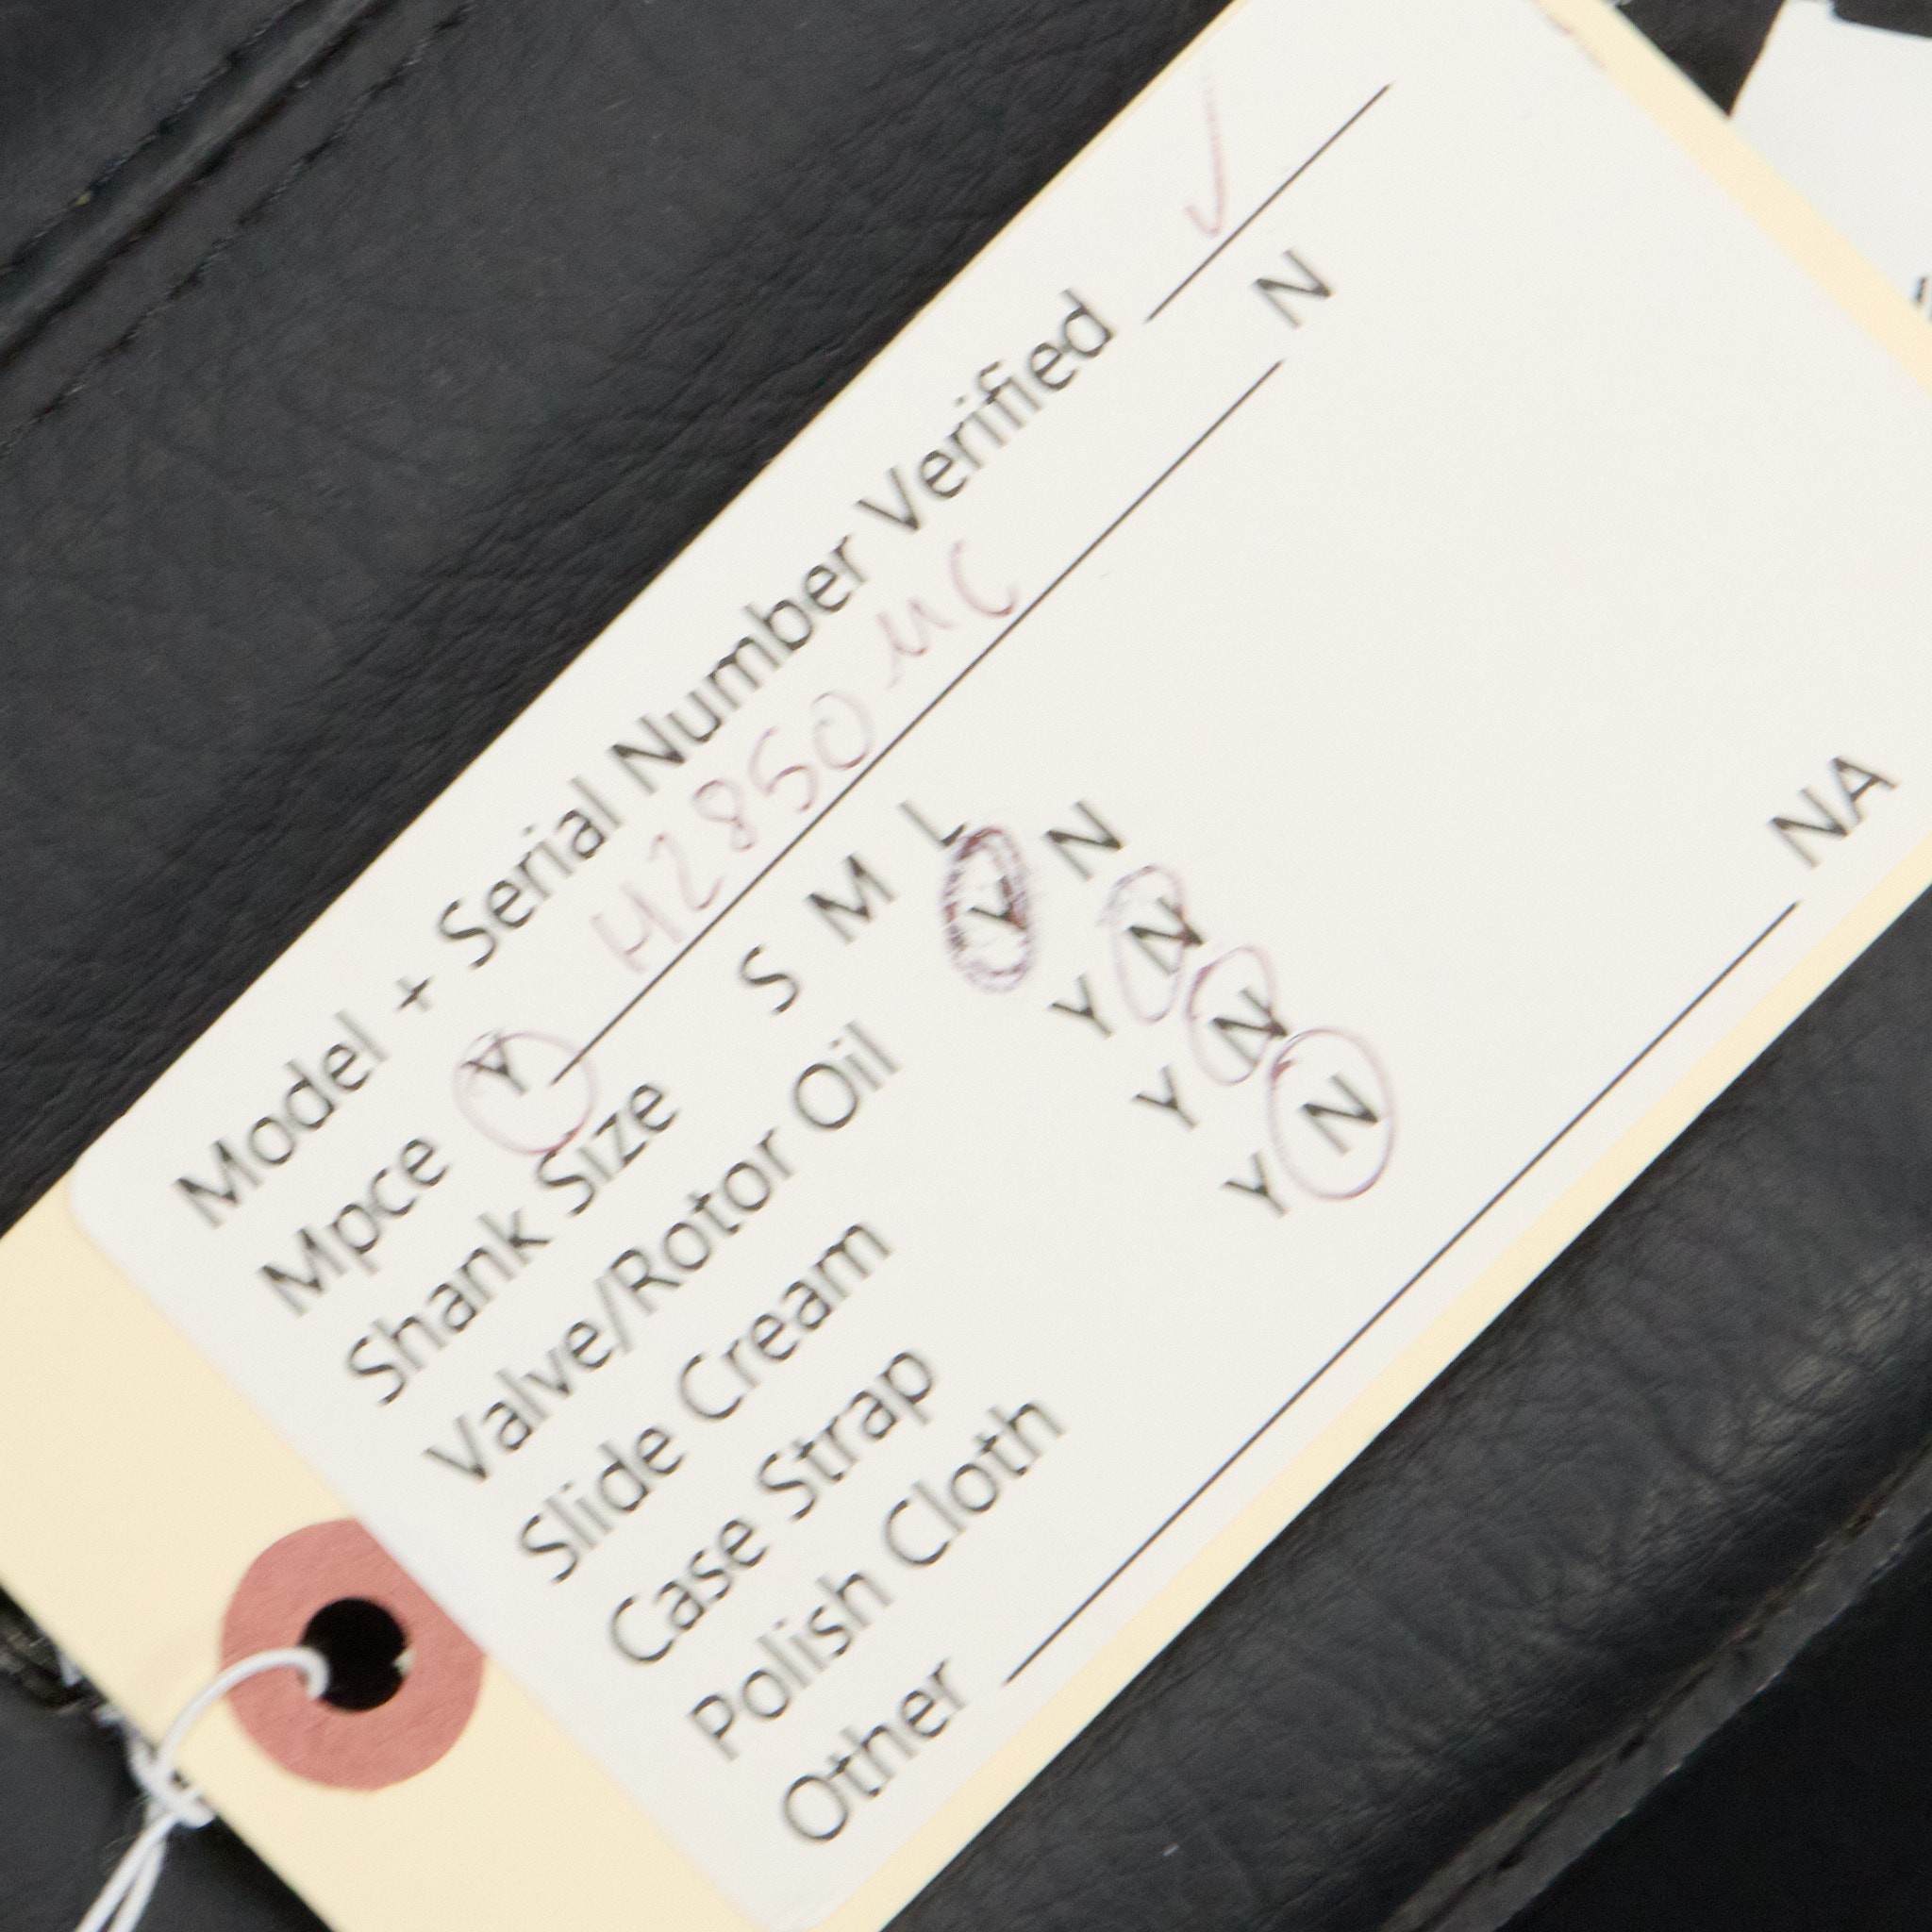 Model + Serial Number Verified ____ ✓
Mpce Y H2850 MC N
Shank Size S M L
Valve/Rotor Oil Y N
Slide Cream Y N
Case Strap Y N
Polish Cloth Y N
Other ____ NA